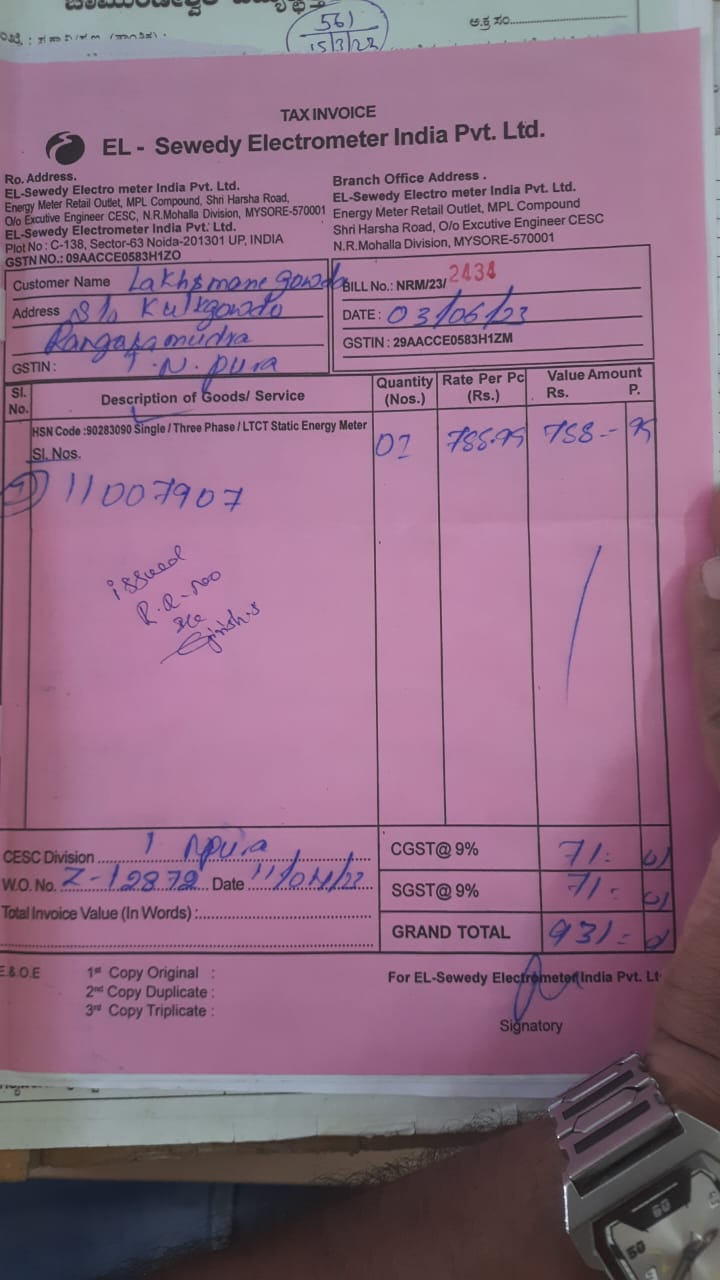 561
15/3/22
ಅ.ಕ್ರ ಸಂ.
TAX INVOICE
EL - Sewedy Electrometer India Pvt. Ltd.
Ro. Address.
EL-Sewedy Electro meter India Pvt. Ltd.
Energy Meter Retail Outlet, MPL Compound, Shri Harsha Road,
O/o Excutive Engineer CESC, N.R.Mohalla Division, MYSORE-570001
EL-Sewedy Electrometer India Pvt. Ltd.
Plot No : C-138, Sector-63 Noida-201301 UP, INDIA
GSTN NO.: 09AACCE0583H1ZO
Branch Office Address .
EL-Sewedy Electro meter India Pvt. Ltd.
Energy Meter Retail Outlet, MPL Compound
Shri Harsha Road, O/o Excutive Engineer CESC
N.R.Mohalla Division, MYSORE-570001
Customer Name Lakhsmane gowda
Address S/o Kullegowda
Rangasamudra
GSTIN : T.N. pura
BILL No.: NRM/23/ 2434
DATE : 03/06/23
GSTIN : 29AACCE0583H1ZM
Sl. No. Description of Goods/ Service Quantity (Nos.) Rate Per Pc (Rs.) Value Amount Rs. P.
HSN Code :90283090 Single / Three Phase / LTCT Static Energy Meter
Sl. Nos. 01 788.99 788.- 99
1 11007907
issued
R.R-no
CESC Division T Npura
W.O. No. Z-12872 Date
Total Invoice Value (In Words) :
CGST@ 9% 71.
SGST@ 9% 71.
GRAND TOTAL 931.
E.& O.E 1st Copy Original :
2nd Copy Duplicate :
3rd Copy Triplicate :
For EL-Sewedy Electrometer India Pvt. Lt
Signatory
60